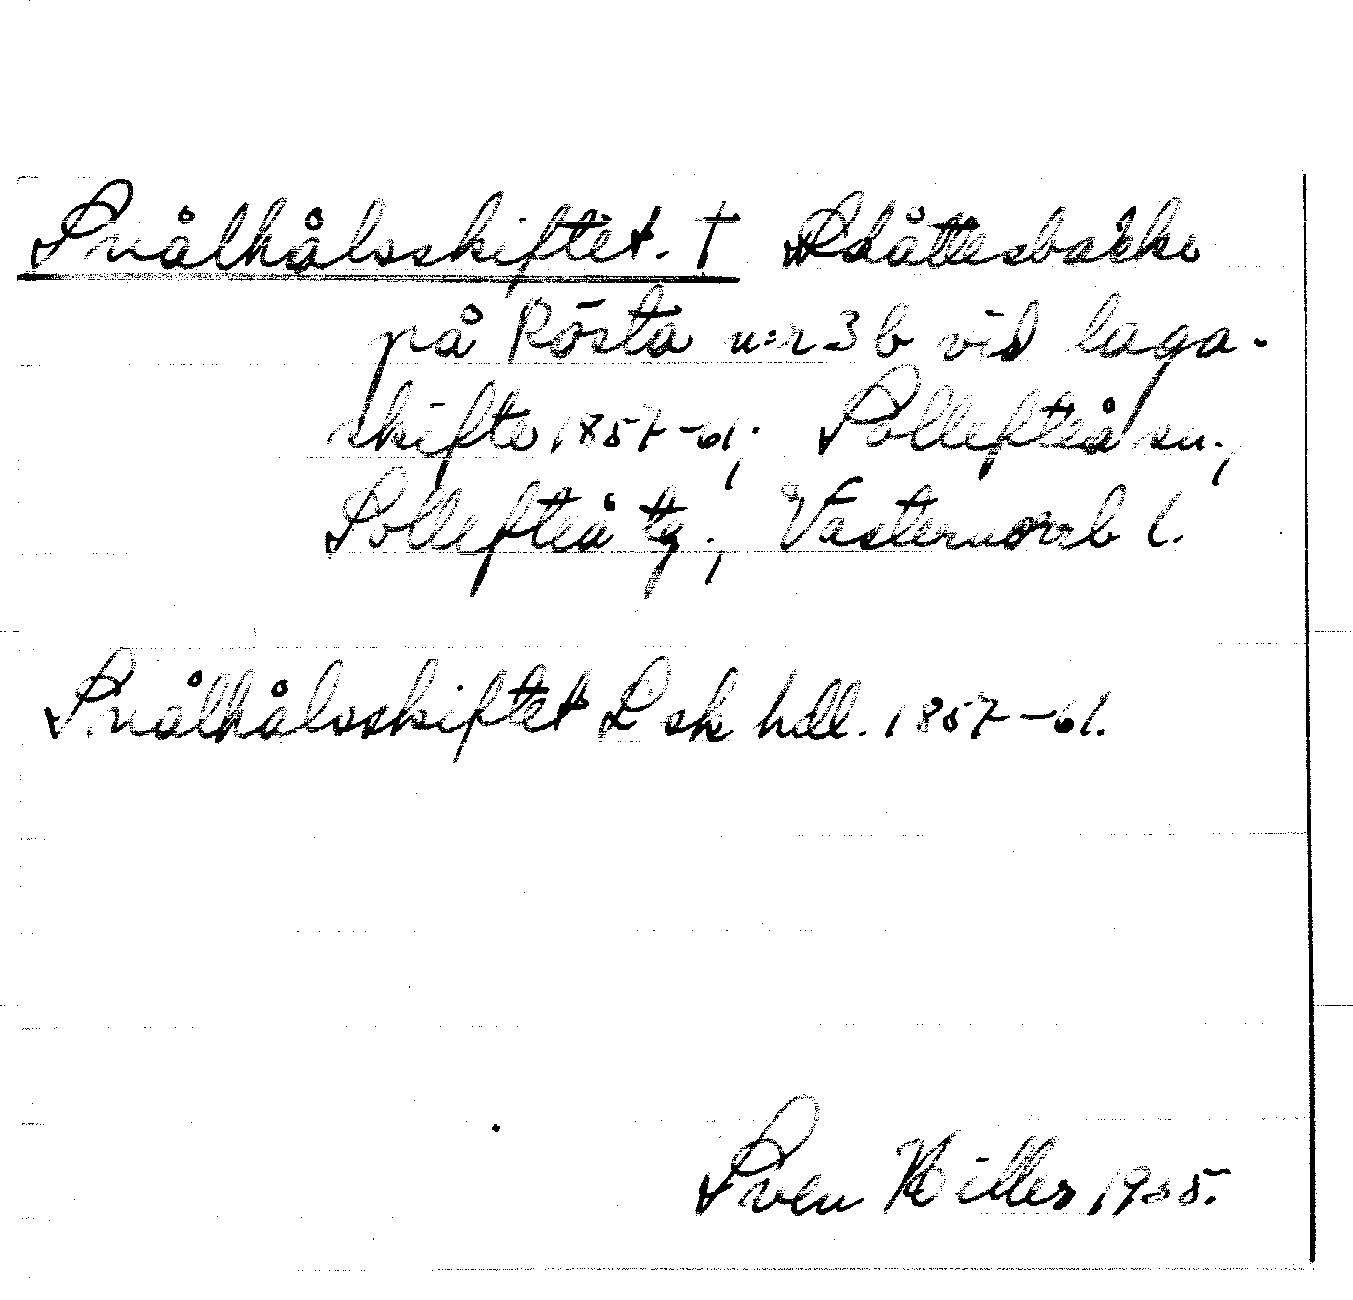 Snålhålsskiftet. † Slåttesbacke
på Rösta n:r 3 b vid laga-
skifte 1857-61; Sollefteå sn.,
Sollefteå tg.; Västernorrb l.
Snålhålsskiftet L sk hdl. 1857-61.
Sven Hiller 1935.